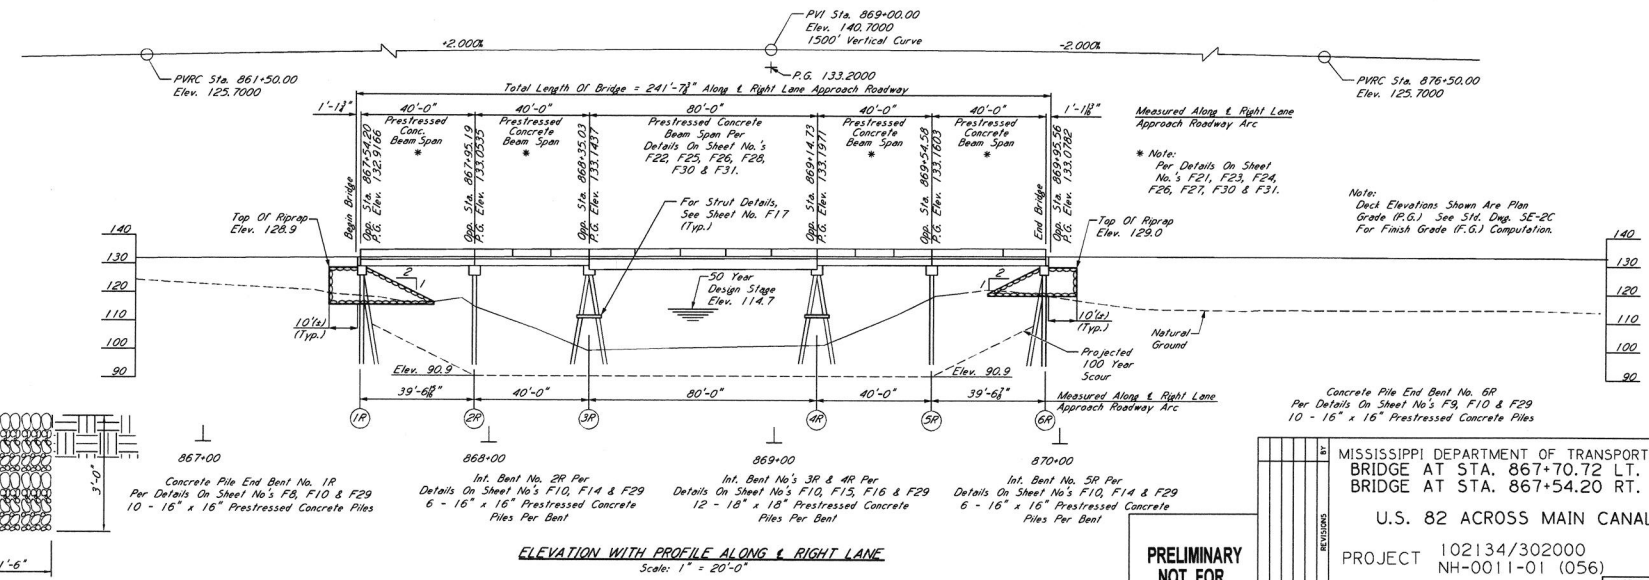 PVI Sta. 869+00.00
Elev. 140.7000
1500' Vertical Curve
+2.000%
-2.000%
P.G. 133.2000
PVRC Sta. 861+50.00
Elev. 125.7000
PVRC Sta. 876+50.00
Elev. 125.7000
Total Length Of Bridge = 241'-7 Along ℄ Right Lane Approach Roadway
40'-0"
40'-0"
80'-0"
40'-0"
40'-0"
Measured Along ℄ Right Lane
Approach Roadway Arc
Prestressed
Conc.
Beam Span
*
Prestressed
Concrete
Beam Span
*
Prestressed Concrete
Beam Span Per
Details On Sheet No.'s
F22, F25, F26, F28,
F30 & F31.
Prestressed
Concrete
Beam Span
*
Prestressed
Concrete
Beam Span
*
Begin Bridge
Opp. Sta. 867+54.20
P.G. Elev. 132.9766
Opp. Sta. 867+95.19
P.G. Elev. 133.0535
Opp. Sta. 868+35.03
P.G. Elev. 133.1437
Opp. Sta. 869+14.73
P.G. Elev. 133.1971
Opp. Sta. 869+54.58
P.G. Elev. 133.1603
End Bridge
Opp. Sta. 869+95.56
P.G. Elev. 133.0782
* Note:
Per Details On Sheet
No.'s F21, F23, F24,
F26, F27, F30 & F31.
Note:
Deck Elevations Shown Are Plan
Grade (P.G.) See Std. Dwg. SE-2C
For Finish Grade (F.G.) Computation.
For Strut Details,
See Sheet No. F17
(Typ.)
Top Of Riprap
Elev. 128.9
Top Of Riprap
Elev. 129.0
140
130
120
110
100
90
140
130
120
110
100
90
2
1
2
1
50 Year
Design Stage
Elev. 114.7
10'(±)
(Typ.)
10'(±)
(Typ.)
Natural
Ground
Projected
100 Year
Scour
Elev. 90.9
Elev. 90.9
40'-0"
80'-0"
40'-0"
Measured Along ℄ Right Lane
Approach Roadway Arc
1R
2R
3R
4R
5R
6R
867+00
868+00
869+00
870+00
Concrete Pile End Bent No. 1R
Per Details On Sheet No's F8, F10 & F29
10 - 16" x 16" Prestressed Concrete Piles
Int. Bent No. 2R Per
Details On Sheet No's F10, F14 & F29
6 - 16" x 16" Prestressed Concrete
Piles Per Bent
Int. Bent No's 3R & 4R Per
Details On Sheet No's F10, F15, F16 & F29
12 - 18" x 18" Prestressed Concrete
Piles Per Bent
Int. Bent No. 5R Per
Details On Sheet No's F10, F14 & F29
6 - 16" x 16" Prestressed Concrete
Piles Per Bent
Concrete Pile End Bent No. 6R
Per Details On Sheet No's F9, F10 & F29
10 - 16" x 16" Prestressed Concrete Piles
3'-0"
1'-6"
ELEVATION WITH PROFILE ALONG ℄ RIGHT LANE
Scale: 1" = 20'-0"
PRELIMINARY
NOT FOR
BY
REVISIONS
MISSISSIPPI DEPARTMENT OF TRANSPORT
BRIDGE AT STA. 867+70.72 LT.
BRIDGE AT STA. 867+54.20 RT.
U.S. 82 ACROSS MAIN CANAL
PROJECT 102134/302000
NH-0011-01 (056)